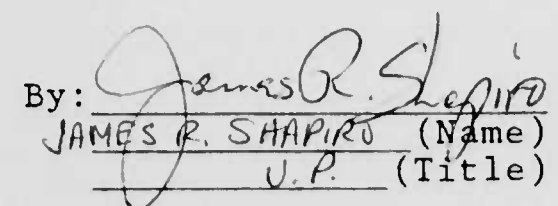 By: James R. Shapiro
JAMES R. SHAPIRO (Name)
V.P. (Title)